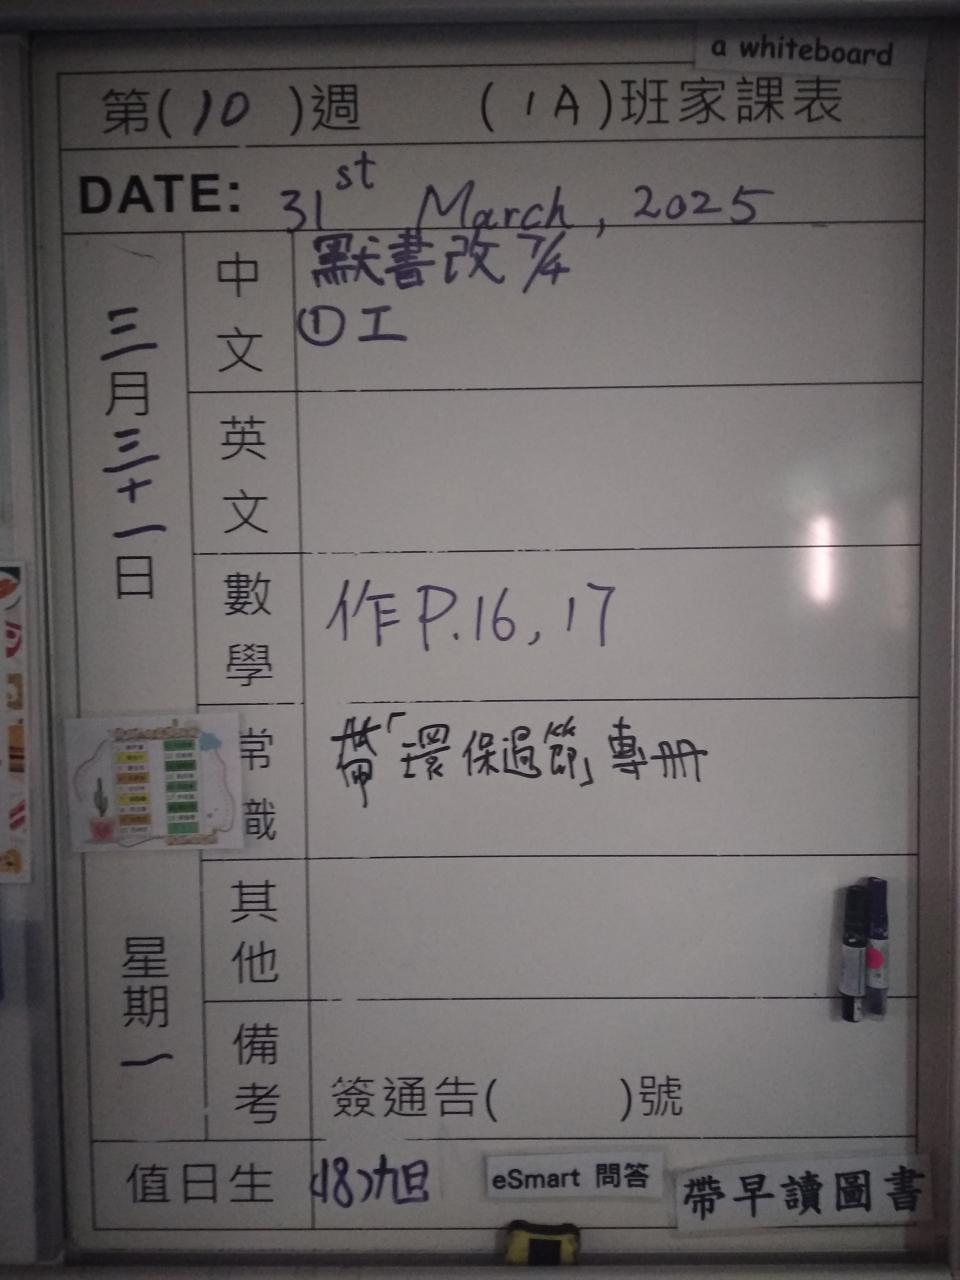 a whiteboard
第(10)週 (1A)班家課表
DATE: 31st March, 2025
三月三十一日
星期一
中文
默書改7/4
①工
英文
數學
作P.16,17
常識
帶「環保過節」專冊
其他
備考
簽通告( )號
值日生 (18)旭
eSmart 問答
帶早讀圖書